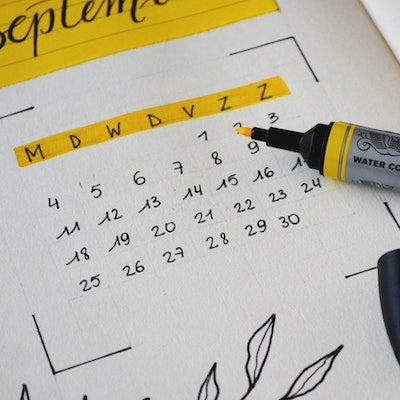 Septem
M D W D V Z Z
1 2 3
4 5 6 7 8 9
11 12 13 14 15 16
18 19 20 21 22 23 24
25 26 27 28 29 30
WATER CO